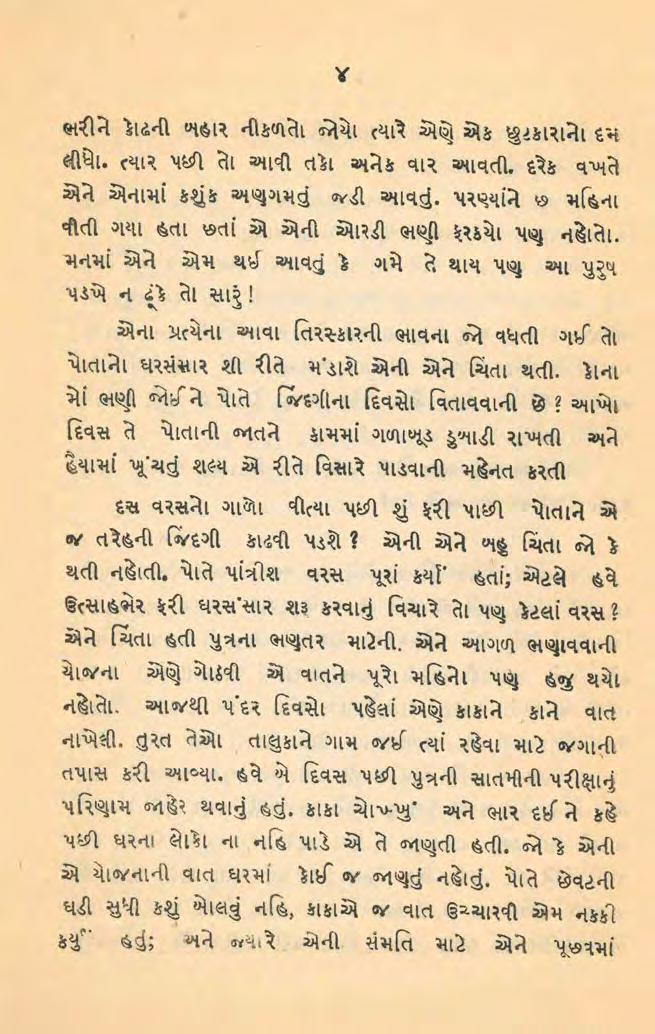 ૪
ભરીને કોઢની બહાર નીકળતો જોયો ત્યારે એણે એક છુટકારાનો દમ
લીધો. ત્યાર પછી તો આવી તકો અનેક વાર આવતી. દરેક વખતે
એને એનામાં કશુંક અણગમતું જડી આવતું. પરણ્યાંને છ મહિના
વીતી ગયા હતા છતાં એ એની ઓરડી ભણી ફરક્યો પણ નહોતો.
મનમાં એને એમ થઈ આવતું કે ગમે તે થાય પણ આ પુરુષ
પડખે ન ઢૂંકે તો સારું!
એના પ્રત્યેના આવા તિરસ્કારની ભાવના જો વધતી ગઈ તો
પોતાનો ઘરસંસાર શી રીતે મંડાશે એની એને ચિંતા થતી. કોના
મોં ભણી જોઈને પોતે જિંદગીના દિવસો વિતાવવાની છે? આખો
દિવસ તે પોતાની જાતને કામમાં ગળાબૂડ ડુબાડી રાખતી અને
હૈયામાં ખૂંચતું શલ્ય એ રીતે વિસારે પાડવાની મહેનત કરતી
દસ વરસનો ગાળો વીત્યા પછી શું ફરી પાછી પોતાને એ
જ તરેહની જિંદગી કાઢવી પડશે? એની એને બહુ ચિંતા જો કે
થતી નહોતી. પોતે પાંત્રીશ વરસ પૂરાં કર્યાં હતાં; એટલે હવે
ઉત્સાહભેર ફરી ઘરસંસાર શરૂ કરવાનું વિચારે તો પણ કેટલાં વરસ?
એને ચિંતા હતી પુત્રના ભણતર માટેની. એને આગળ ભણાવવાની
યોજના એણે ગોઠવી એ વાતને પૂરો મહિનો પણ હજુ થયો
નહોતો. આજથી પંદર દિવસો પહેલાં એણે કાકાને કાને વાત
નાખેલી. તુરત તેઓ તાલુકાને ગામ જઈ ત્યાં રહેવા માટે જગાની
તપાસ કરી આવ્યા. હવે બે દિવસ પછી પુત્રની સાતમીની પરીક્ષાનું
પરિણામ જાહેર થવાનું હતું. કાકા ચોખ્ખું અને ભાર દઈ ને કહે
પછી ઘરના લોકો ના નહિ પાડે એ તે જાણતી હતી. જો કે એની
એ યોજનાની વાત ઘરમાં કોઈ જ જાણતું નહોતું. પોતે છેવટની
ઘડી સુધી કશું બોલવું નહિ, કાકાએ જ વાત ઉચ્ચારવી એમ નક્કી
કર્યું હતું; અને જ્યારે એની સંમતિ માટે એને પૂછવામાં